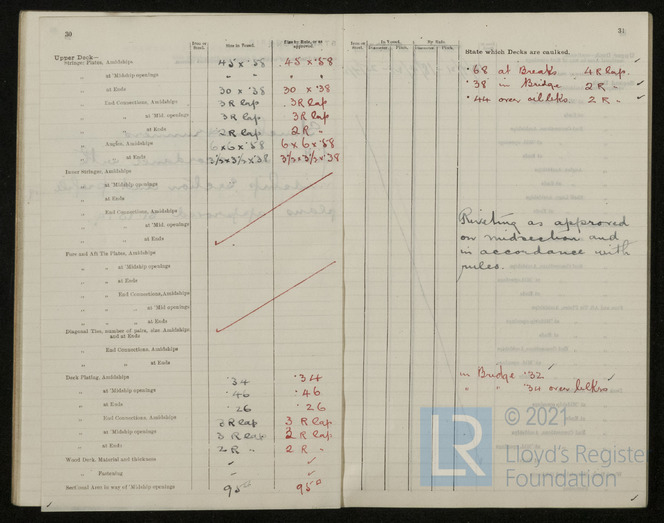 30
Iron or Steel.
Size in Vessel.
Size by Rule, or as approved.
Upper Deck—
Stringer Plates, Amidships 45 x .58 45 x .58
„ at 'Midship openings „ „ „ „
„ at Ends 30 x .38 30 x .38
„ End Connections, Amidships 3 R lap 3 R lap
„ „ at 'Mid. openings 3 R lap 3 R lap
„ „ at Ends 2 R lap 2 R „
„ Angles, Amidships 6 x 6 x .58 6 x 6 x .58
„ „ at Ends 3½ x 3½ x .38 3½ x 3½ x .38
Inner Stringer, Amidships
„ at 'Midship openings
„ at Ends
„ End Connections, Amidships
„ „ at 'Mid. openings
„ „ at Ends
Fore and Aft Tie Plates, Amidships
„ at 'Midship openings
„ at Ends
„ End Connections, Amidships
„ „ at 'Mid openings
„ „ at Ends
Diagonal Ties, number of pairs, size Amidships and at Ends
„ End Connections, Amidships
„ „ at Ends
Deck Plating, Amidships .34 .34
„ at 'Midship openings .46 .46
„ at Ends .26 .26
„ End Connections, Amidships 3 R lap 3 R lap
„ „ at 'Midship openings 3 R lap 3 R lap
„ „ at Ends 2 R „ 2 R „
Wood Deck, Material and thickness
„ Fastening
Sectional Area in way of 'Midship openings 95□ 95□
31
Iron or Steel.
In Vessel.
By Rule.
Diameter. Pitch. Diameter. Pitch.
State which Decks are caulked.
.68 at Breaks 4 R lap.
.38 in Bridge 2 R „
.44 over 2 R „
Riveting as approved
on midsection and
in accordance with
rules.
in Bridge .32
„ „ .34 over blkrs
© 2021
LR
Lloyd's Register
Foundation